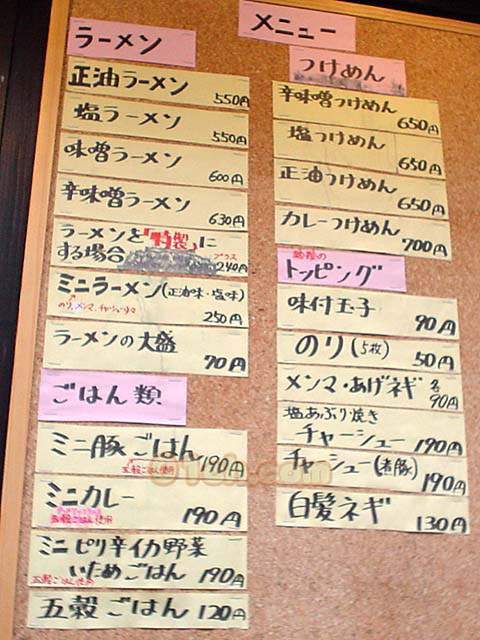 メニュー
ラーメン
正油ラーメン 550円
塩ラーメン 550円
味噌ラーメン 600円
辛味噌ラーメン 630円
ラーメンを「特製」に
する場合 プラス 240円
ミニラーメン(正油味・塩味)
のり、メンマ、チャーシュー入り
250円
ラーメンの大盛 70円
ごはん類
ミニ豚ごはん 190円
五穀ごはん使用
ミニカレー 190円
五穀ごはん使用
ミニピリ辛イカ野菜
いためごはん 190円
五穀ごはん使用
五穀ごはん 120円
つけめん
辛味噌つけめん 650円
塩つけめん 650円
正油つけめん 650円
カレーつけめん 700円
トッピング
味付玉子 90円
のり(5枚) 50円
メンマ・あげネギ 各90円
塩あぶり焼き
チャーシュー 190円
チャーシュー(煮豚) 190円
白髪ネギ 130円